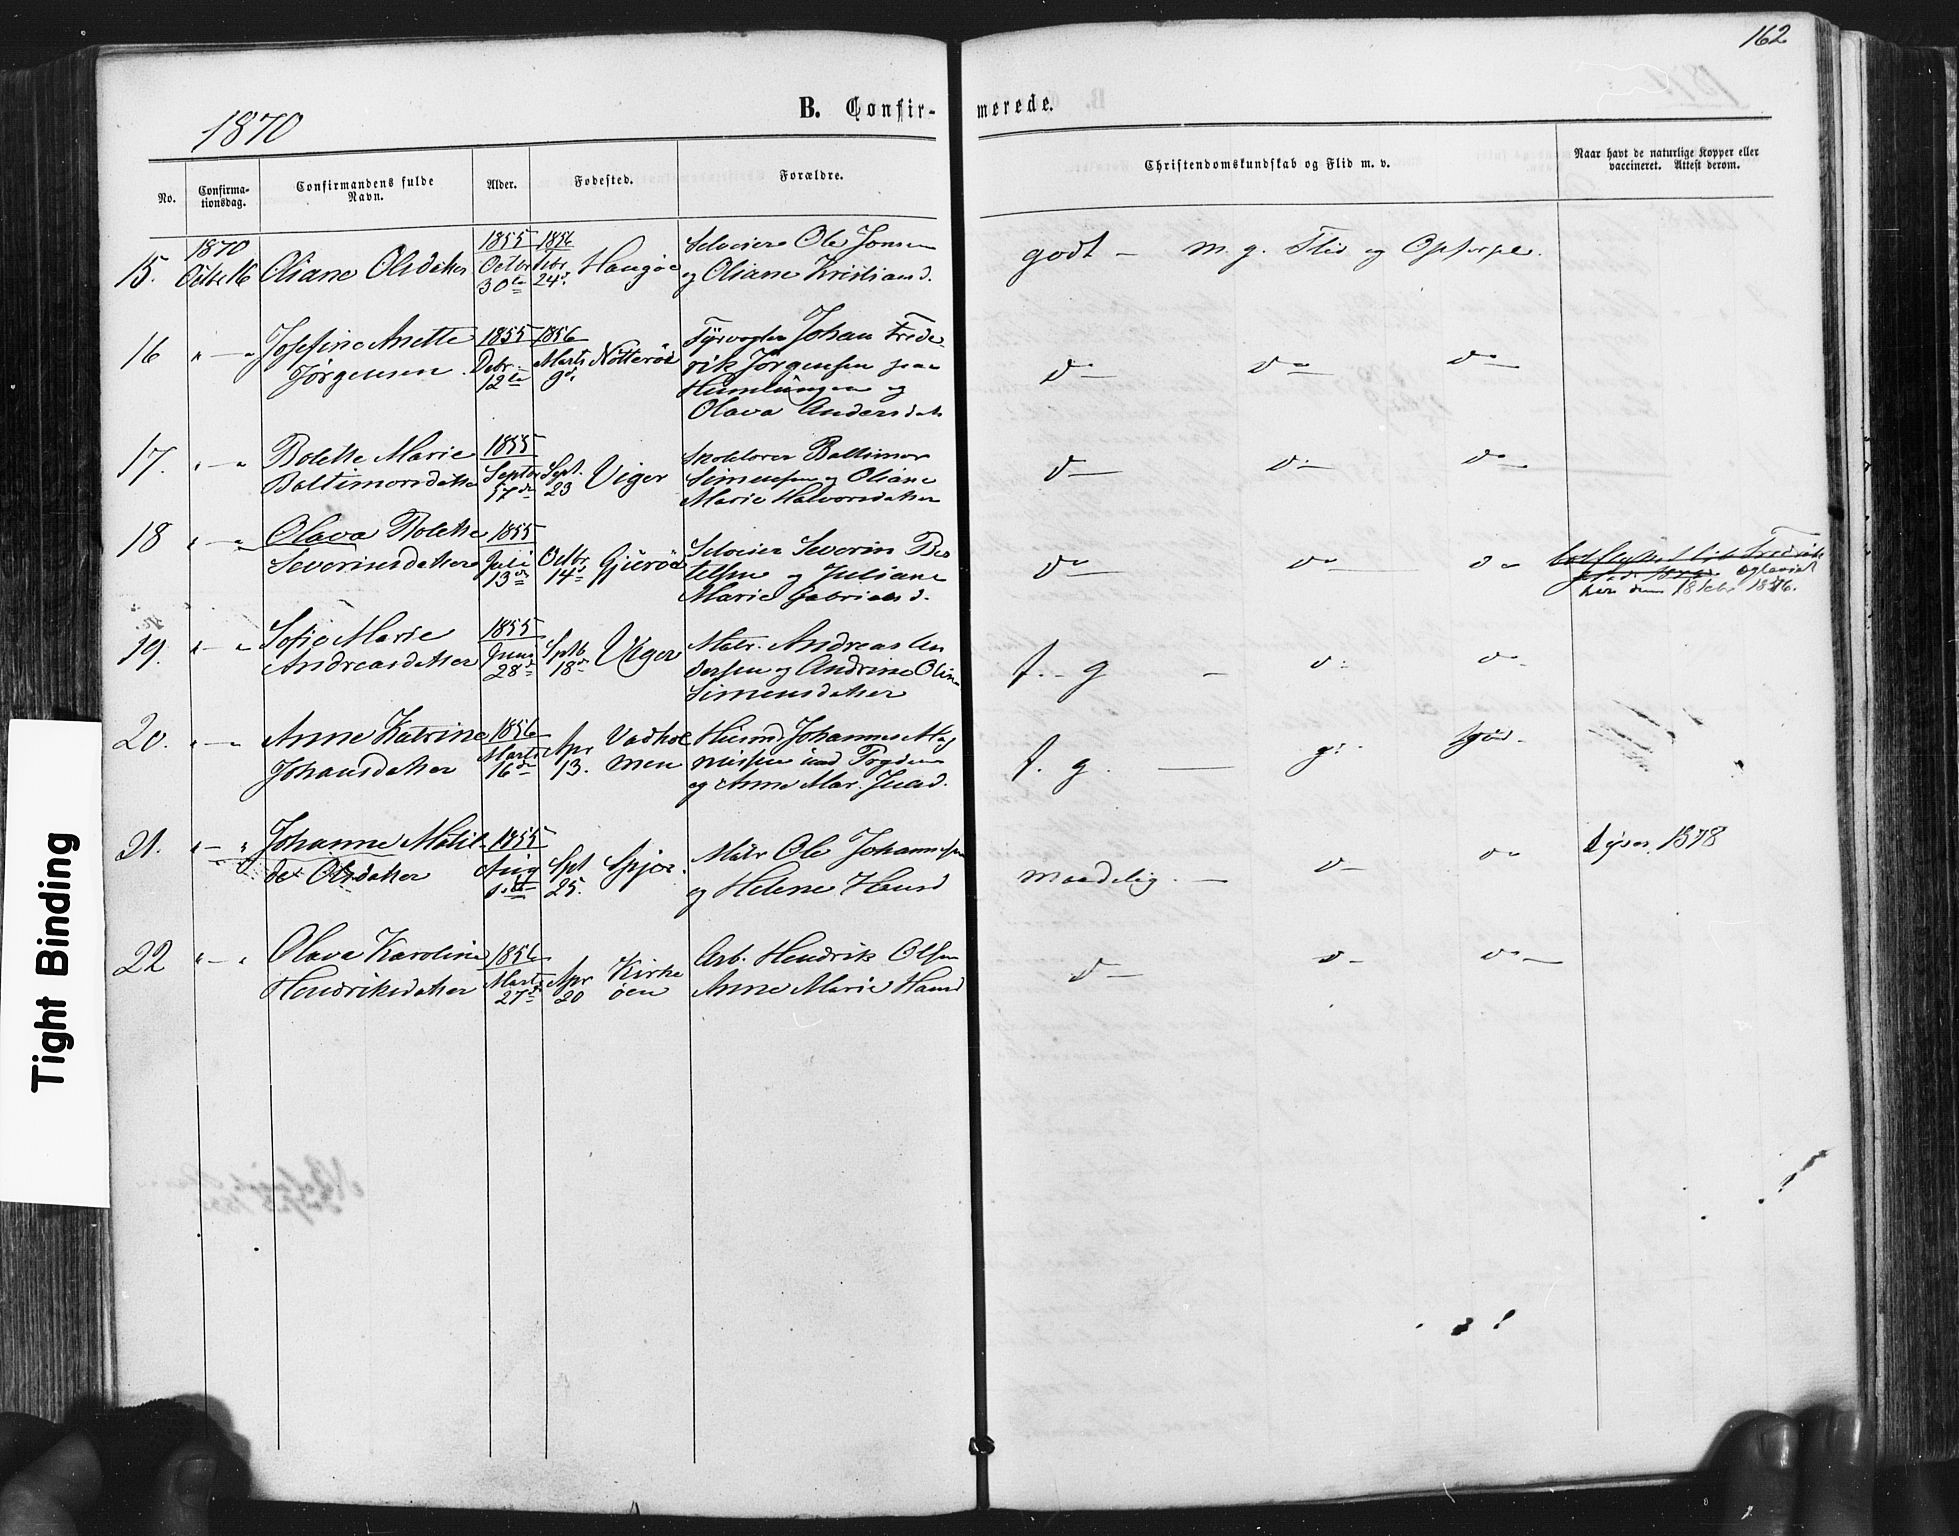 162
1870
B. Confir-
merede.
No.
Confirma-
tionsdag.
Confirmandens fulde
Navn.
Alder.
Fødested.
Forældre.
Christendomskundskab og Flid m. v.
Naar havt de naturlige Kopper eller
vaccineret. Attest derom.
15.
1870
Octbr 16
Oliane Olsdatter
1855
Octbr
30te
1856
24
Haugöe
Selveier Ole Jonsen
og Oliane Kristiansd.
godt – m. g. Flid og Opførsel.
16
" — "
Josefine Anette
Jörgensen
1855
Debr.
12te
1856
Marts
9d.
Nötteröe
Fyrvogter Johan Frede-
rik Jörgensen paa
Humlungen og
Olava Andersdat
do do do
17.
" — "
Bolette Marie
Baltimorsdatter
1855
Septbr
17de
Sept.
23
Viger
Skolelærer Baltimor
Simensen og Oliane
Marie Halvorsdatter
do do do
18
" — "
Olava Bolette
Severinsdatter
1855
Juli
13de
Octbr
14d
Gjuröe
Selveier Severin Ber-
telsen og Juliane
Marie Gabrielsd.
do do do
her den 18 Febr 1876.
19.
" — "
Sofie Marie
Andreasdatter
1855
Juni
28d
Septb
18d
Viger
Matr. Andreas An
dersen og Andrine Olin
Simensdatter
t. g – do do
20.
" — "
Anne Katrine
Johansdatter
1856
Marts
16de
Apr
13.
Vadhol
men
Husmd Johannes Mag
nussen
og Anne Mar.
t. g. — g. god.
21.
" — "
Johanne Matil
de Olsdatter
1855
Aug
1ste
Spt
25.
Spjær
Matr Ole Johannesen
og Helene Hansd
Maadelig. – do do
Lyser. 1878
22
" — "
Olava Karoline
Hendriksdatter
1856
Marts
27d
Apr
20
Kirke
öen
Arb. Hendrik Olsen
Anne Marie Hansd
do do do
Tight Binding